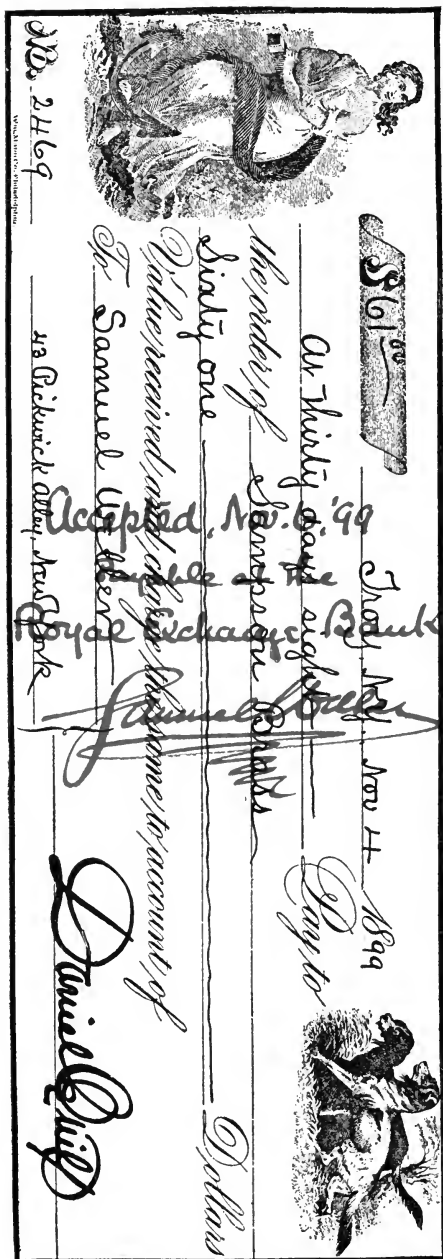 $61.00
Troy, N.Y. Nov 4 1899
At thirty days sight Pay to
the order of Sampson Brass
Sixty one Dollars
Value received and charge the same to account of
To Samuel Weller
43 Pickwick alley, New York
Daniel Quilp
No. 2469
Accepted, Nov. 6, '99
Payable at the
Royal Exchange Bank
Samuel Weller